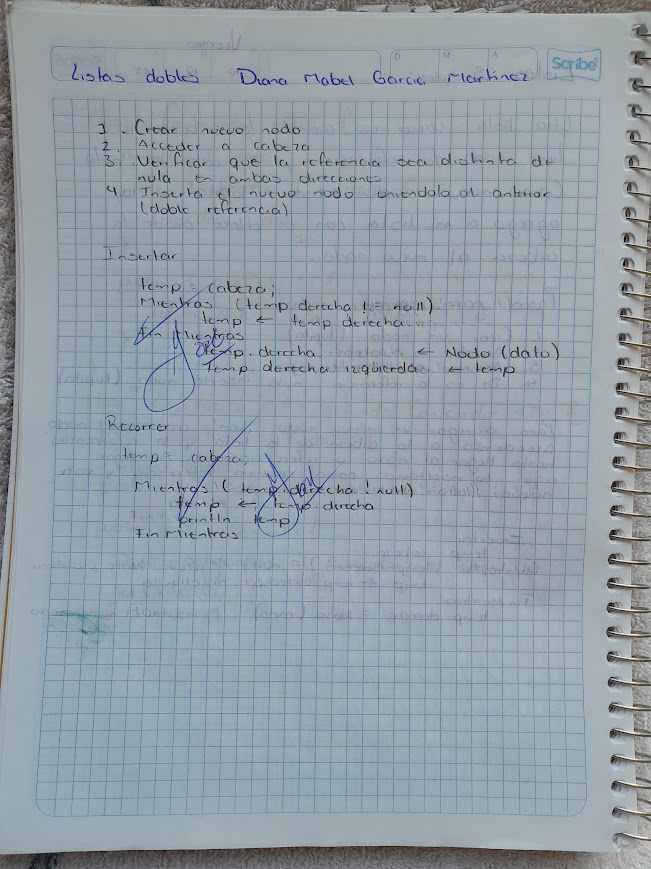 Scribe
Listas dobles Diana Mabel Garcia Martinez
D M A
1. Crear nuevo nodo
2. Acceder a cabeza
3. Verificar que la referencia sea distinta de
nula en ambas direcciones
4. Inserta el nuevo nodo uniendolo al anterior
(doble referencia)
Insertar
temp = cabeza;
Mientras (temp derecha != null)
temp ← temp derecha
Fin Mientras
temp. derecha ← Nodo (dato)
Temp derecha izquierda ← temp
Recorrer
temp = cabeza;
Mientras ( temp.derecha ! null)
temp ← temp derecha
println temp
Fin Mientras